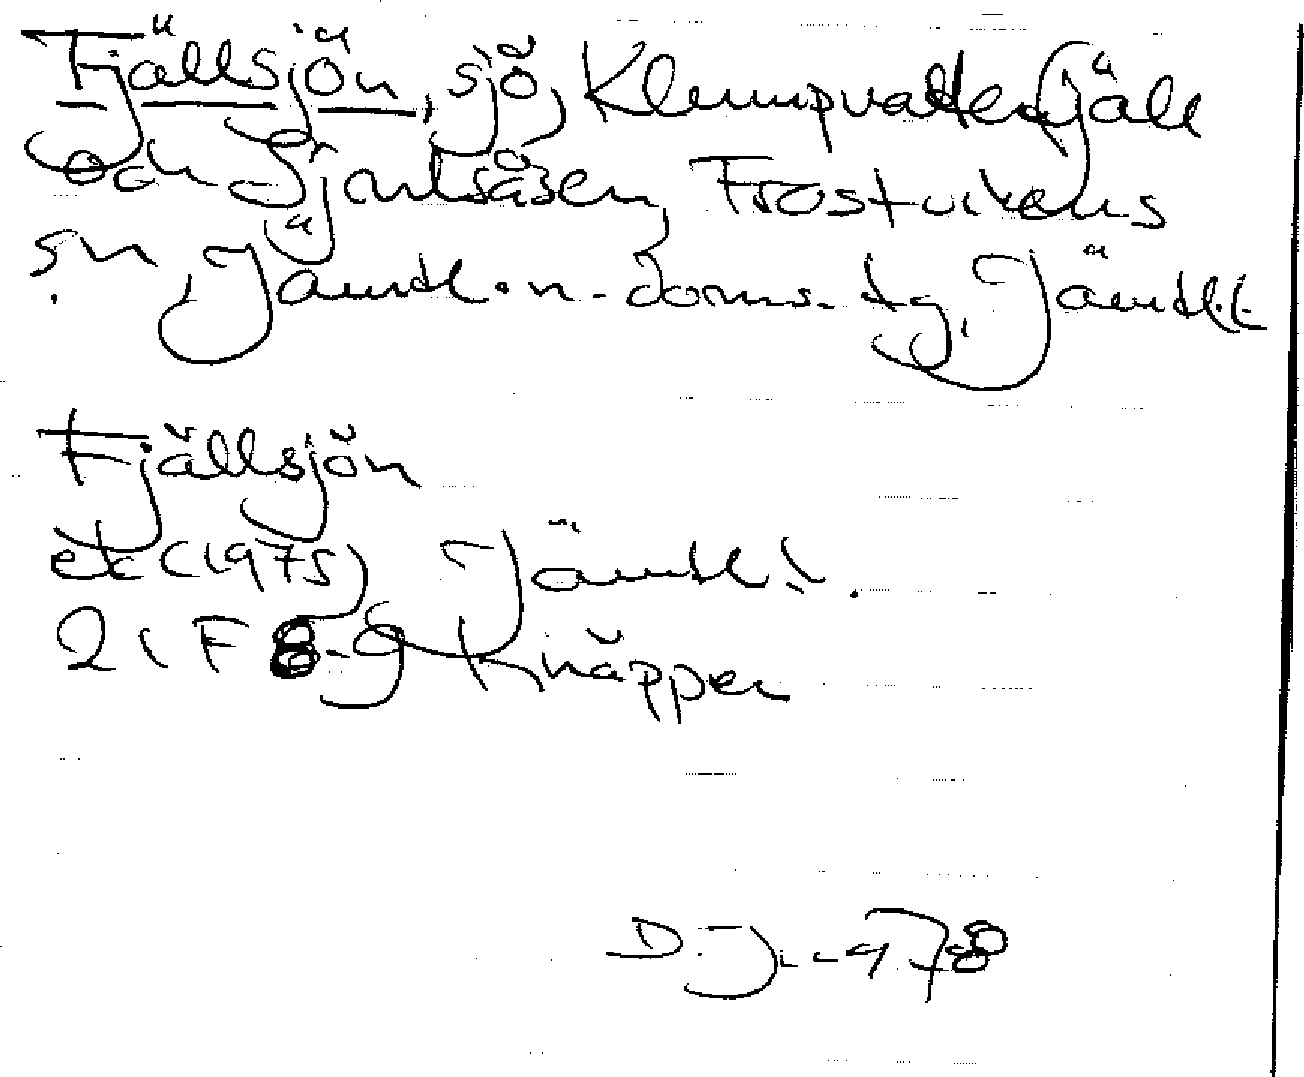 Fjällsjön, sjö, Klumpvattenfjäll
och Sjöulsåsen, Frostvikens
sn, Jämtl. n. doms. tg, Jämtl. l.
Fjällsjön
etc (1975) Jämtl.
21 F 8-g Knäppen
D. J. 1978